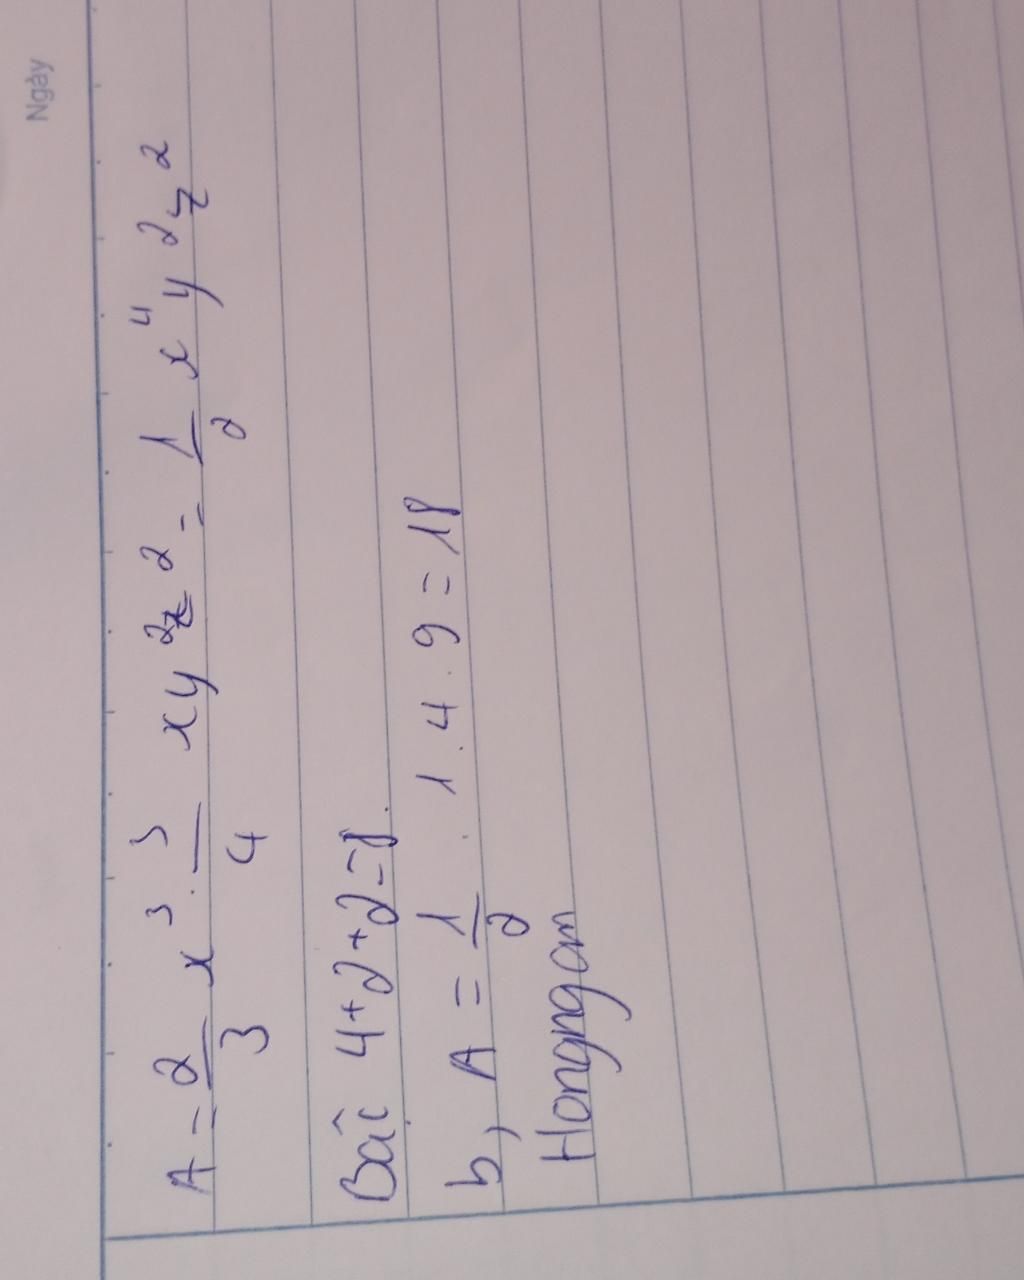 Ngày
A = 2/3 x³ · 3/4 xy²z² = 1/2 x⁴y²z²
Bậc 4+2+2=8.
b, A = 1/2 . 1 . 4 . 9 = 18
Hongngam